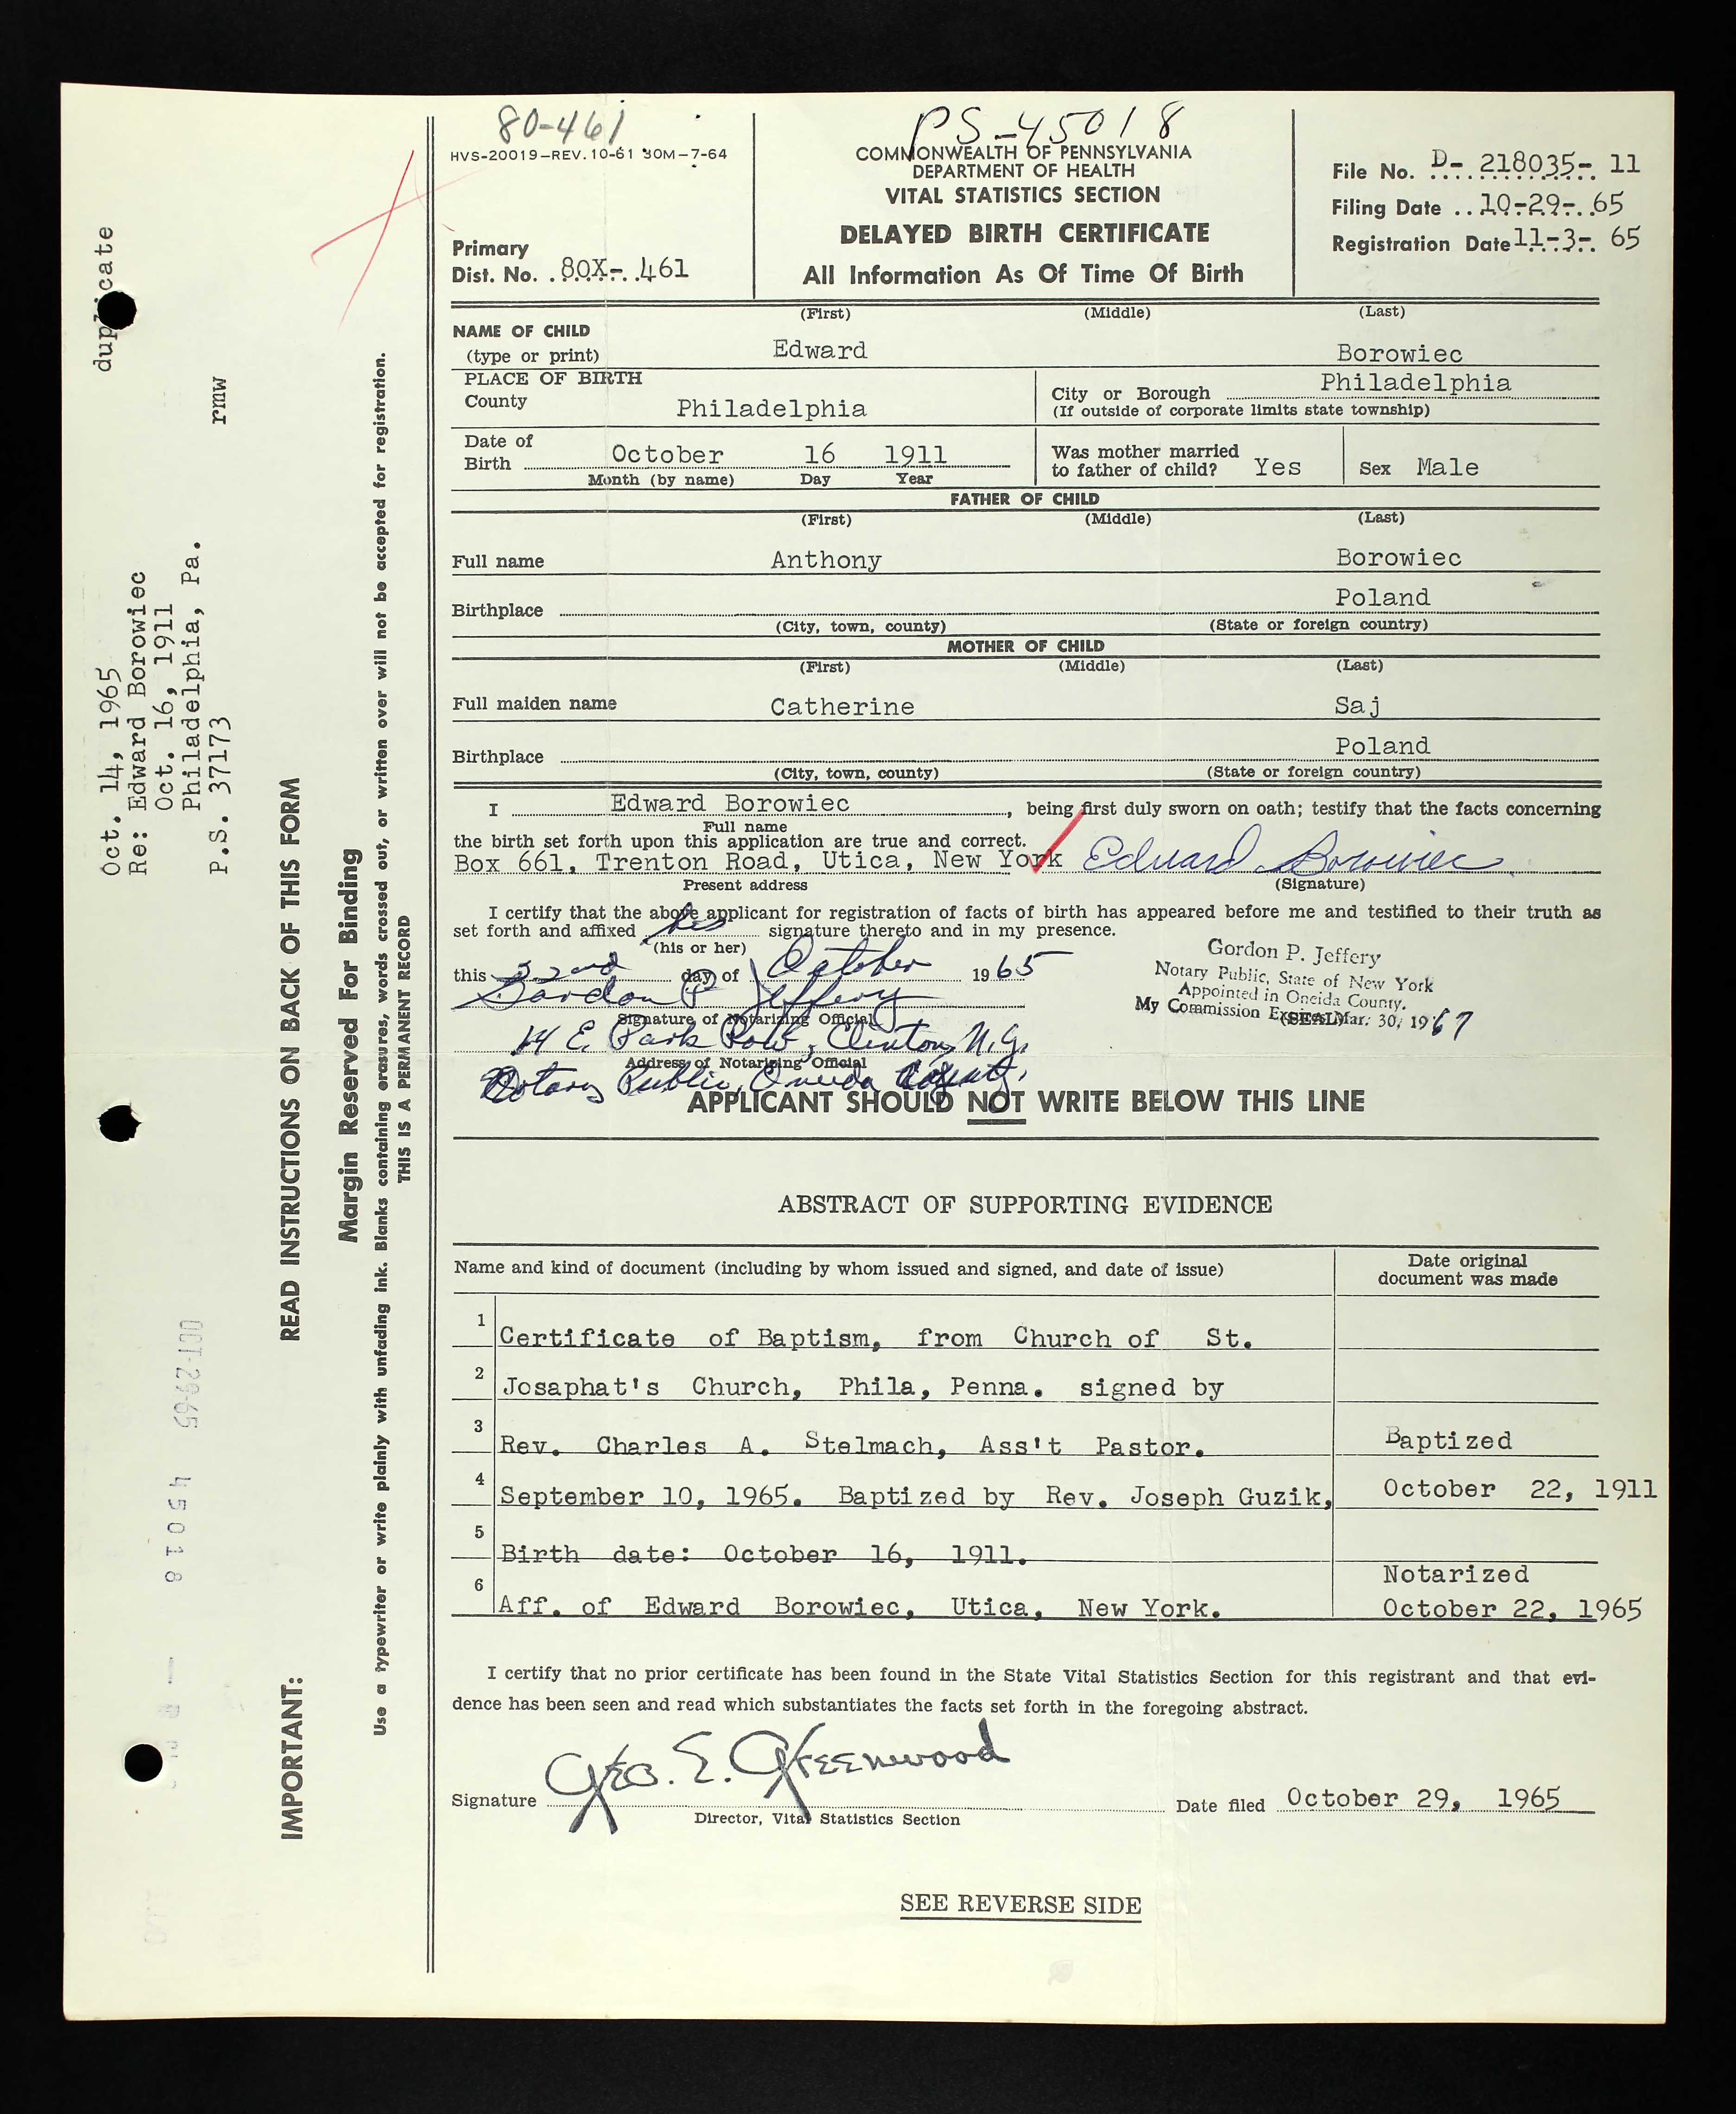 80-461
HVS-20019-REV. 10-61 30M-7-64
Primary
Dist. No. 80X- 461
PS-45018
COMMONWEALTH OF PENNSYLVANIA
DEPARTMENT OF HEALTH
VITAL STATISTICS SECTION
DELAYED BIRTH CERTIFICATE
All Information As Of Time Of Birth
File No. D- 218035- 11
Filing Date 10-29- 65
Registration Date 11-3- 65
(First) (Middle) (Last)
NAME OF CHILD
(type or print) Edward Borowiec
PLACE OF BIRTH
County Philadelphia
City or Borough Philadelphia
(If outside of corporate limits state township)
Date of
Birth October 16 1911
Month (by name) Day Year
Was mother married
to father of child? Yes
Sex Male
FATHER OF CHILD
(First) (Middle) (Last)
Full name Anthony Borowiec
Birthplace Poland
(City, town, county) (State or foreign country)
MOTHER OF CHILD
(First) (Middle) (Last)
Full maiden name Catherine Saj
Birthplace Poland
(City, town, county) (State or foreign country)
I Edward Borowiec, being first duly sworn on oath; testify that the facts concerning
Full name
the birth set forth upon this application are true and correct.
Box 661, Trenton Road, Utica, New York Edward Borowiec
Present address (Signature)
I certify that the above applicant for registration of facts of birth has appeared before me and testified to their truth as
set forth and affixed his signature thereto and in my presence.
(his or her)
this 22nd day of October 1965
Gordon P. Jeffery
Signature of Notarizing Official
14 E. Park Row, Clinton, N.Y.
Address of Notarizing Official
Notary Public, Oneida County.
Gordon P. Jeffery
Notary Public, State of New York
Appointed in Oneida County.
My Commission Expires Mar. 30, 1967
(SEAL)
APPLICANT SHOULD NOT WRITE BELOW THIS LINE
ABSTRACT OF SUPPORTING EVIDENCE
Name and kind of document (including by whom issued and signed, and date of issue)
Date original
document was made
1 Certificate of Baptism, from Church of St.
2 Josaphat's Church, Phila, Penna. signed by
3 Rev. Charles A. Stelmach, Ass't Pastor. Baptized
4 September 10, 1965. Baptized by Rev. Joseph Guzik, October 22, 1911
5 Birth date: October 16, 1911.
Notarized
6 Aff. of Edward Borowiec, Utica, New York. October 22, 1965
I certify that no prior certificate has been found in the State Vital Statistics Section for this registrant and that evi-
dence has been seen and read which substantiates the facts set forth in the foregoing abstract.
Signature Geo. E. Greenwood
Director, Vital Statistics Section
Date filed October 29, 1965
SEE REVERSE SIDE
duplicate
rmw
Oct. 14, 1965
Re: Edward Borowiec
Oct. 16, 1911
Philadelphia, Pa.
P.S. 37173
IMPORTANT: READ INSTRUCTIONS ON BACK OF THIS FORM
Margin Reserved For Binding
Use a typewriter or write plainly with unfading ink. Blanks containing erasures, words crossed out, or written over will not be accepted for registration.
THIS IS A PERMANENT RECORD
OCT-29-65
45018